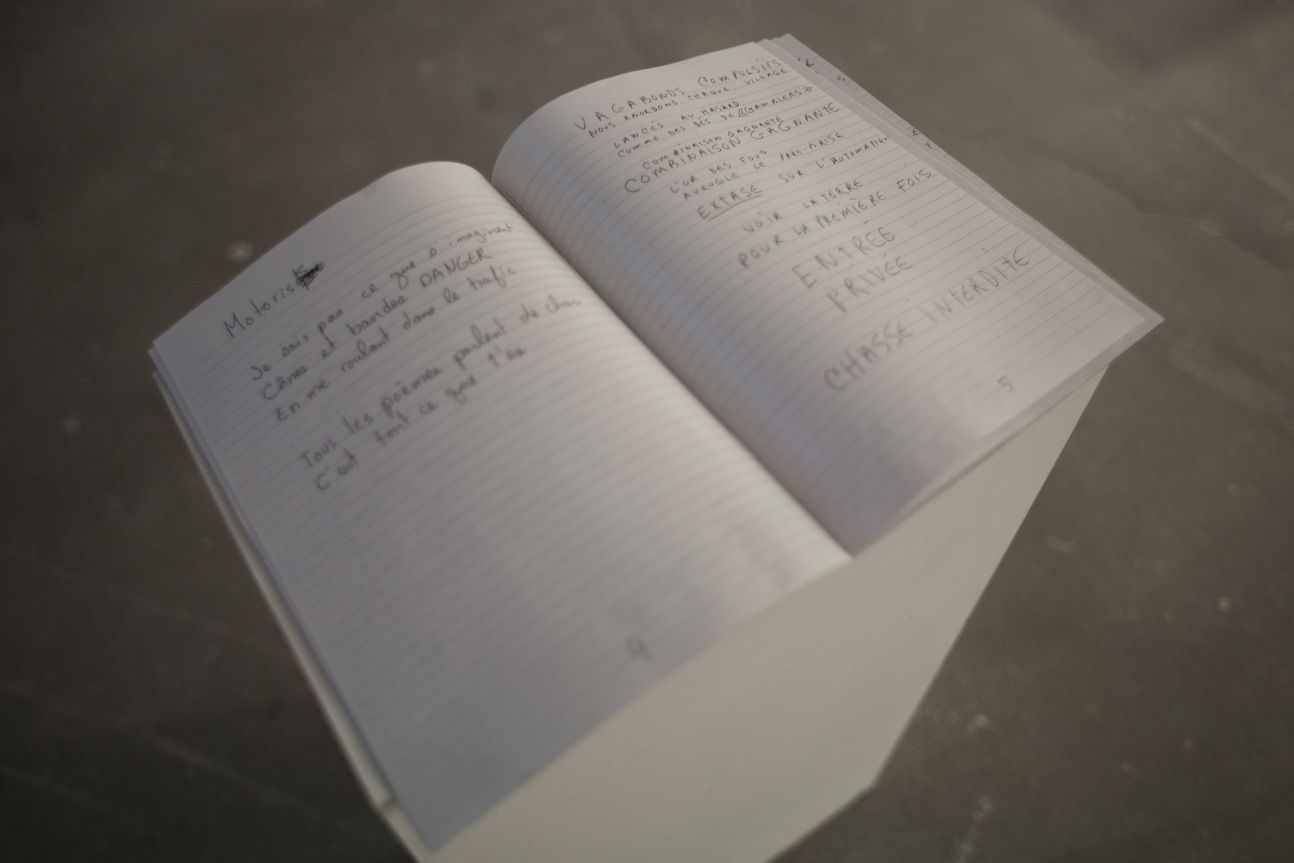 Motoris
Je sais pas ce que s'imaginent
Cônes et bandes DANGER
En me roulant dans le trafic
Tous les poèmes parlent de
C'est tout ce que t'es
4
VAGABONDS COMPULSIFS
NOUS ABORDONS CHAQUE VILLAGE
LANCÉS AU HASARD
COMME DES DÉS DE «GAMBLERS»
COMBINAISON GAGNANTE
COMBINAISON GAGNANTE
L'OR DES FOUS
AVEUGLE LE PARE-BRISE
EXTASE SUR L'AUTOMATIK
VOIR LA TERRE
POUR LA PREMIÈRE FOIS
ENTRÉE
PRIVÉE
CHASSE INTERDITE
5